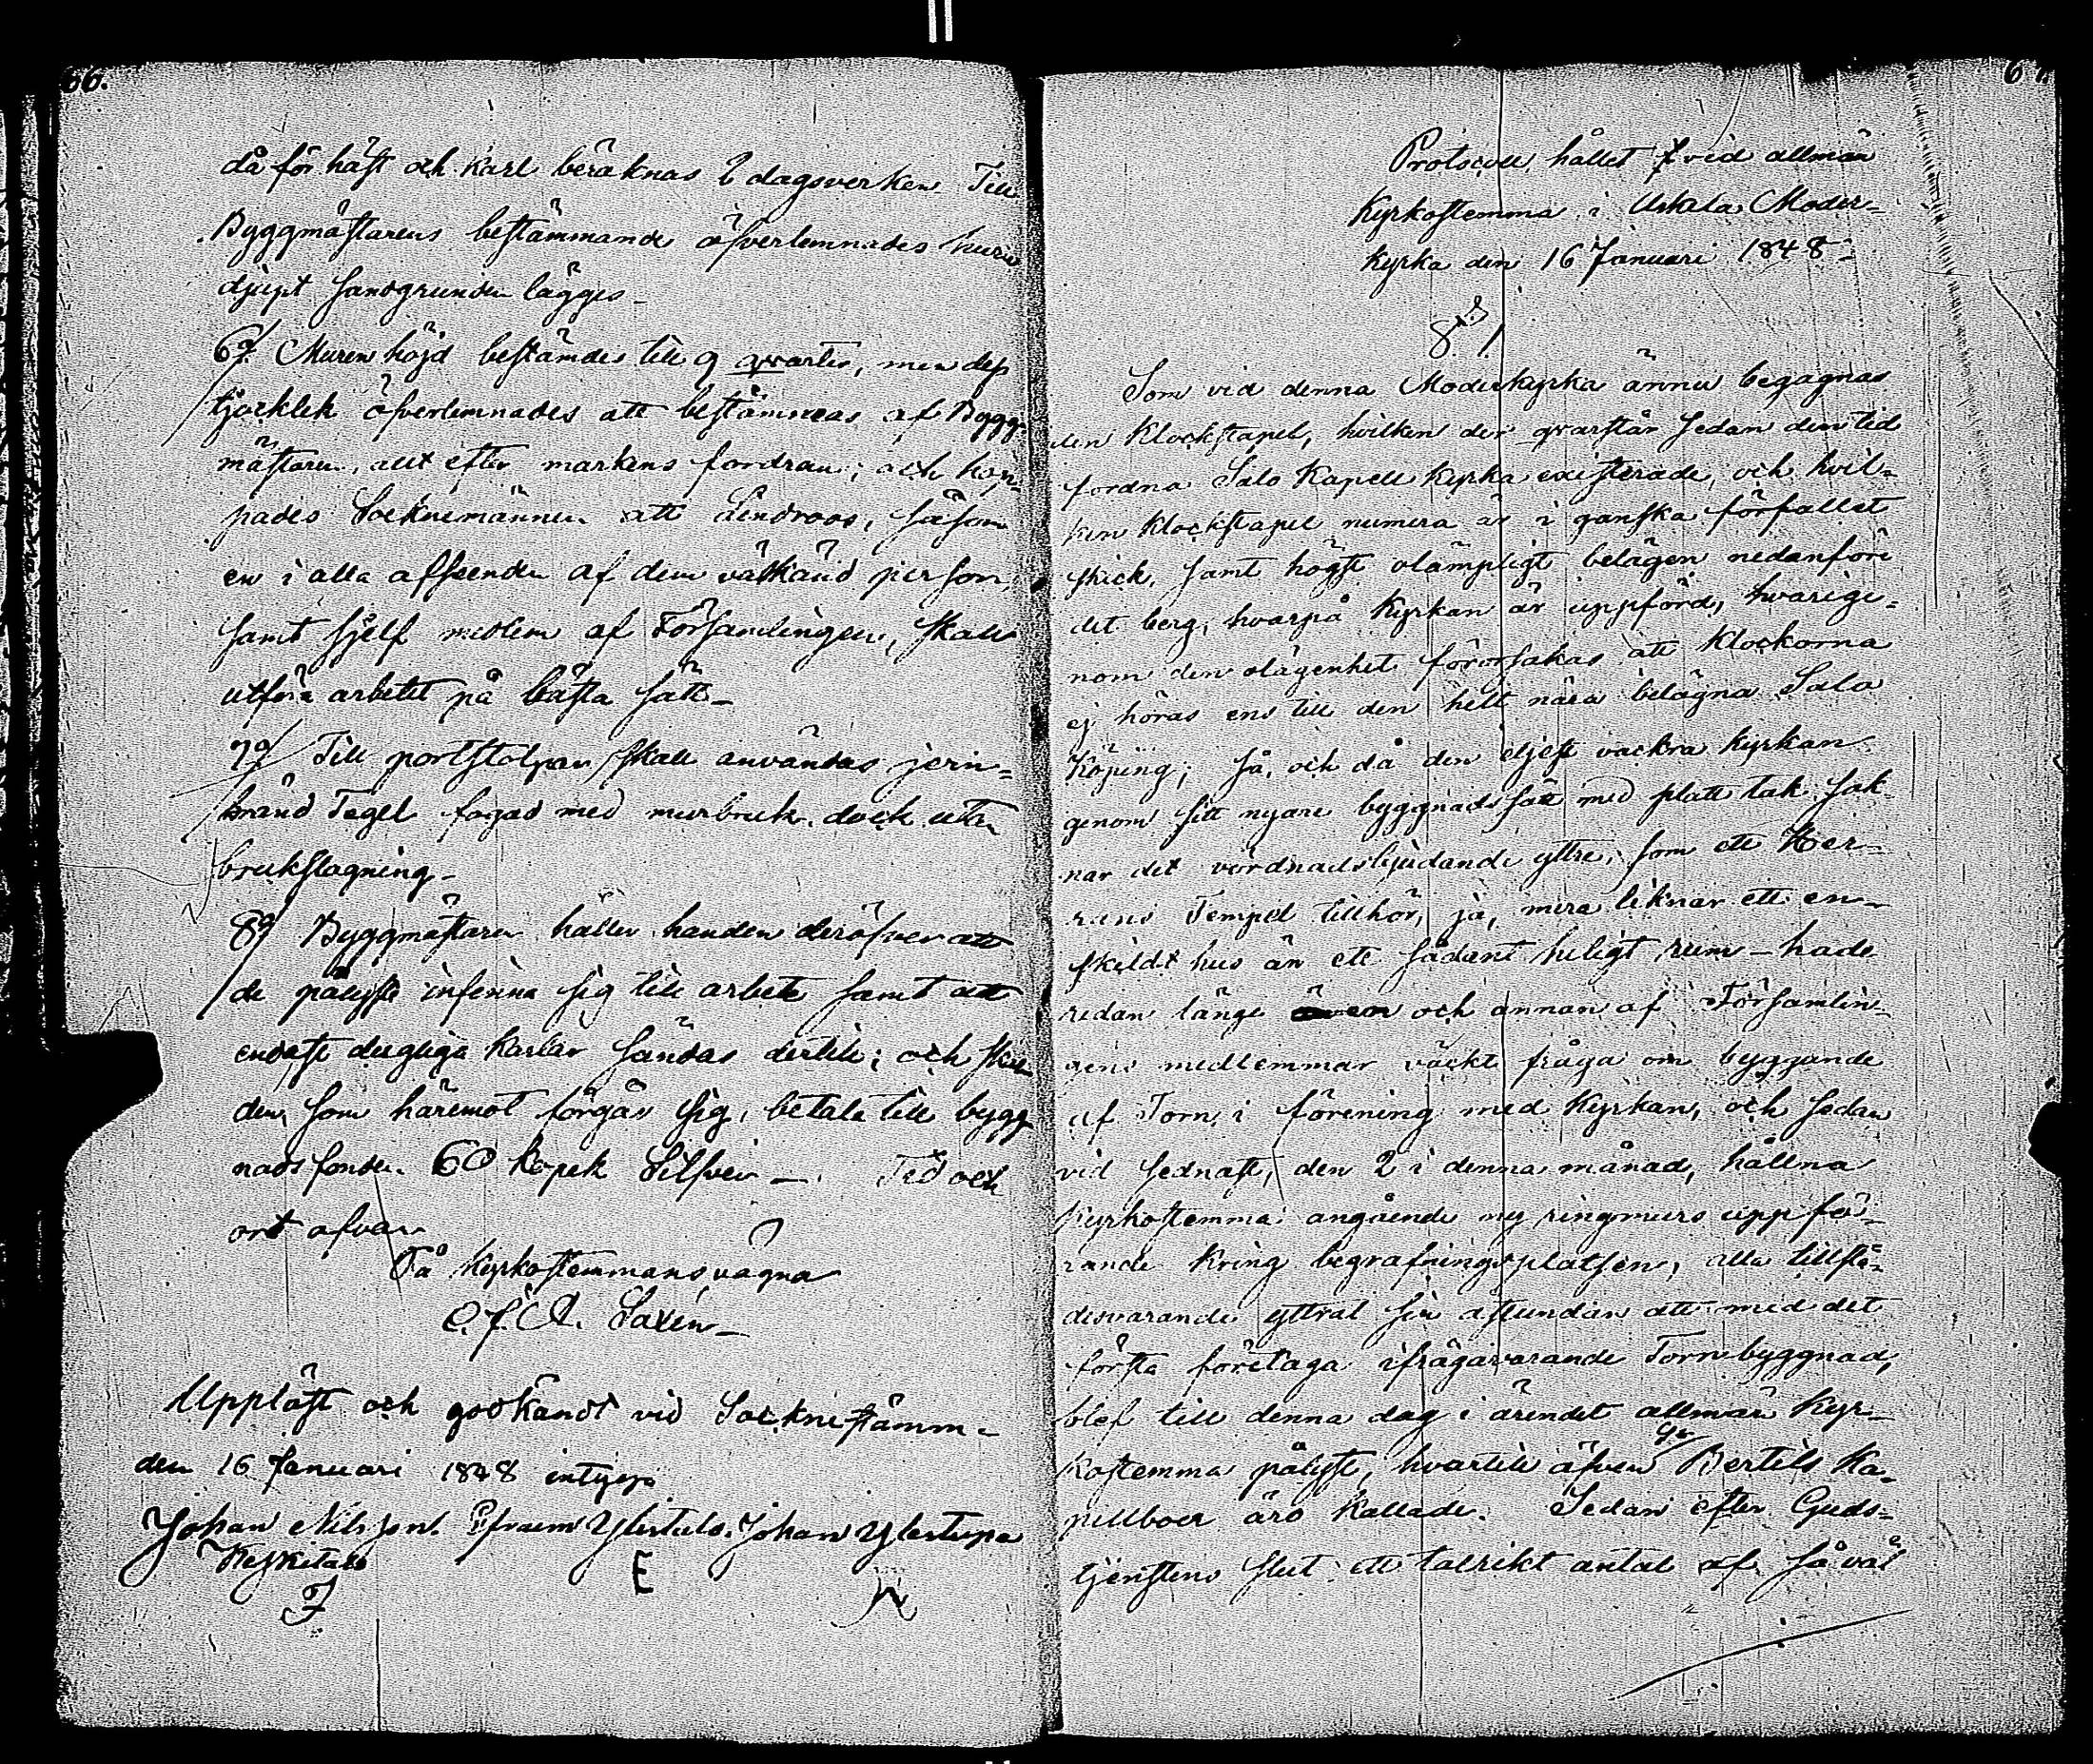 66.
då för häst och karl beräknas 2 dagsverken. Till
Byggmästarens bestämmande öfverlemnades huru
djupt sandgrunden lägges –
6o/. Muren höjd bestämdes till 9 qvarter, men dess
tjocklek öfverlemnades att bestämmas af Bygg-
mästaren, allt efter markens fordran; och hop-
pades Socknemännen att Lindroos, såsom
en i alla afseenden af dem välkänd person,
samt sjelf medlem af Församlingen, skall
utföra arbetet på bästa sätt –
7o/ Till portstolpar skall användas jern-
bränd Tegel fogad med murbruk dock utan
brukslagning –
8o/ Byggmästaren håller handen deröfver att
de pålyste infinna sig till arbete samt att
endast dugliga karlar sändas dertill; och skall
den, som häremot förgår sig, betala till bygg-
nadsfonden 60 kopek Silfver –. Tid och
ort ofvan
På Kyrkostemmans vägna
C. J. A. Saxén –
Uppläst och godkändt vid Socknestämma
den 16 Januari 1848 intyga
Johan Nilsson Efraim Johan
Keskitalo
E
67.
Protocoll, hållet vid allmän
Kyrkostemma i Uskela Moder-
kyrka den 16 Januari 1848 –
§ 1.
Som vid denna Moderkyrka ännu begagnas
den Klockstapel, hvilken der qvarstår sedan den tid
fordna Salo Kapell kyrka existerade, och hvil-
ken Klockstapel numera är i ganska förfallet
skick, samt högst olämpligt belägen nedanföre
det berg, hvarpå Kyrkan är uppförd, hvarige-
nom den olägenhet förorsakas att klockorna
ej höras ens till den helt nära belägna Salo
Köping; så, och då den eljest vackra kyrkan
genom sitt nyare byggnadssätt med platt tak sak-
nar det vördnadsbjudande yttre, som ett Her-
rans Tempel tillhör, ja, mera liknar ett en-
skildt hus än ett sådant heligt rum – hade
redan länge en och annan af Församlin-
gens medlemmar väckt fråga om byggande
af Torn i förening med Kyrkan, och sedan
vid sednast, den 2 i denna månad, hållna
Kyrkostemma angående ny ringmurs uppfö-
rande kring begrafningsplatsen, alla tillstä-
desvarande yttrat sin åstundan att med det
första företaga ifrågavarande Tornbyggnad,
blef till denna dag i ärendet allmän Kyr-
kostemma pålyst, hvartill äfven Bertils Ka-
pellboer äro kallade. Sedan efter Guds-
tjenstens slut ett talrikt antal af såväl